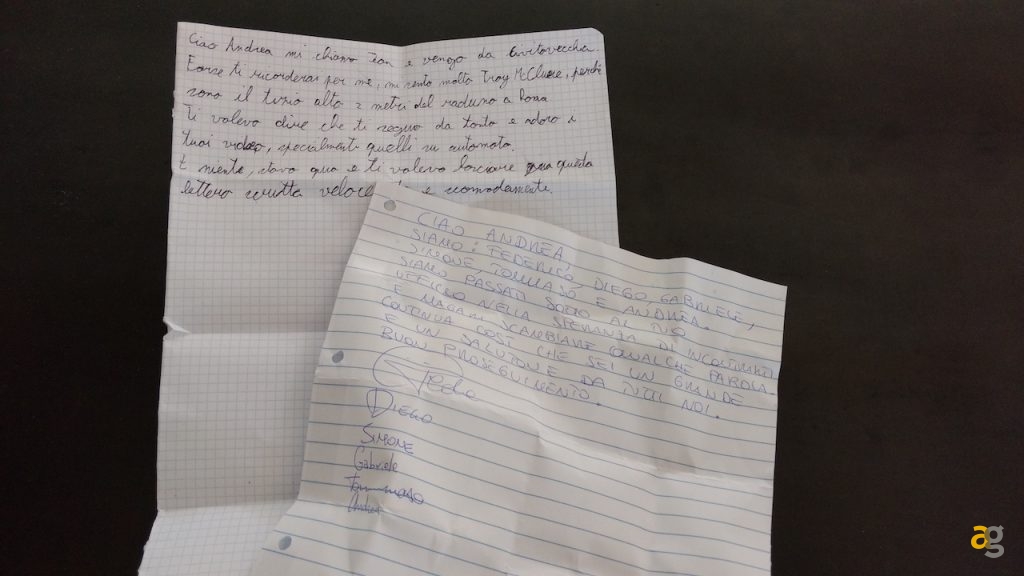 Ciao Andrea mi chiamo Jean e vengo da Civitavecchia
Forse ti ricorderai per me, mi sento molto Troy McClure, perché
sono il tizio alto 2 metri del raduno a Roma
Ti volevo dire che ti seguo da tanto e adoro i
tuoi video, specialmente quelli su automoto.
E niente, stavo qua e ti volevo lasciare questa
lettera scritta e scomodamente.
CIAO ANDREA,
SIAMO: FEDERICO, DIEGO, GABRIELE,
SIMONE, TOMMASO E ANDREA.
SIAMO PASSATI SOTTO AL TUO
UFFICIO NELLA SPERANZA DI INCONTRARTI
E MAGARI SCAMBIARE QUALCHE PAROLA.
CONTINUA COSÌ CHE SEI UN GRANDE
E UN SALUTONE DA TUTTI NOI.
BUON PROSEGUIMENTO.
DIEGO
SIMONE
Gabriele
Tommaso
Andrea
ag